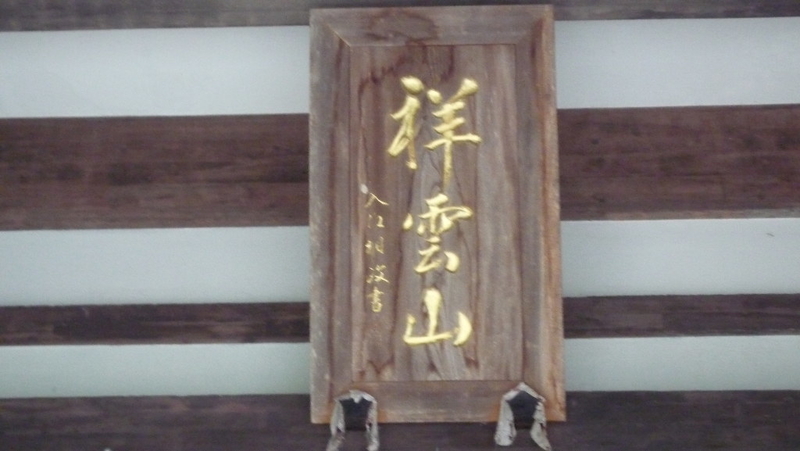 祥雲山
入江相政書